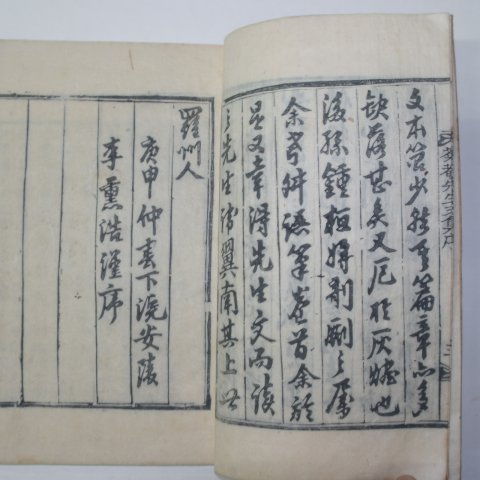 文本少然篇章亦多
缺落甚矣又厄於灰燼也
後孫鍾植將剞劂之屬
余舛語昔余於
是又幸得先生文而讀
之先生諱翼南其上世
羅州人
庚申仲春下浣安陵
李熏浩謹序